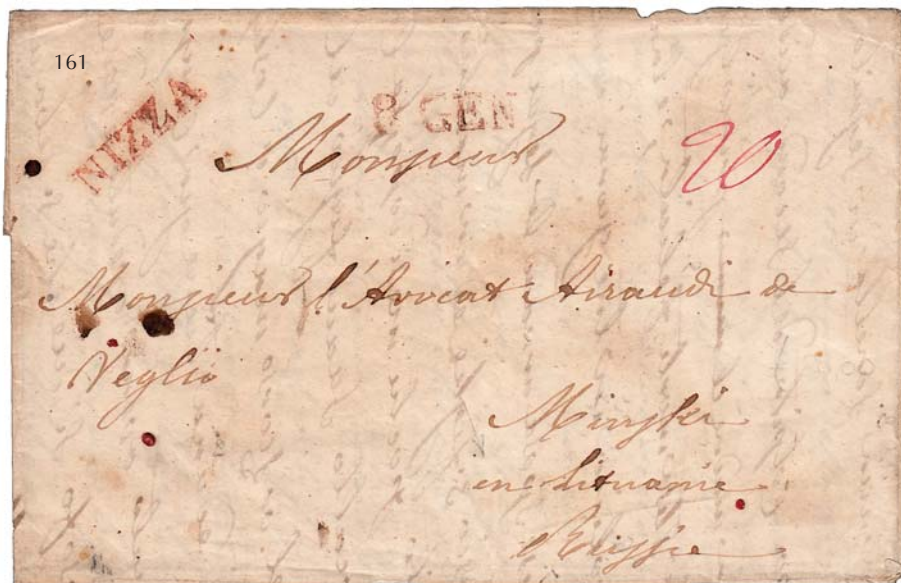 161
NIZZA
8 GEN
Monsieur
20
Monsieur l'Avocat Airaudi de
Veglio
Minski
en Lituanie
Russie